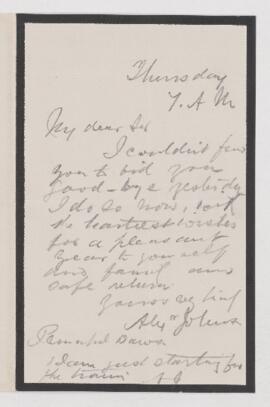 Thursday
7. A M
My dear Sir
I couldn't find
you to bid you
good-bye yesterday
I do so now, with
the heartiest wishes
for a pleasant
year to yourself
and family and
safe return
Yours
Alex Johnson
Principal Dawson
I am just starting for
the train A J